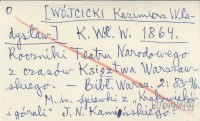 0
[WÓJCICKI Kazimierz Wła-
dysław] K. Wł. W. 1864.
Roczniki Teatru Narodowego
z czasów Księstwa Warszaw-
skiego. – Bibl. Warsz. 2: 83-96.
M. in. śpiewki z "Krakowiaków
i górali" J. N. Kamińskiego